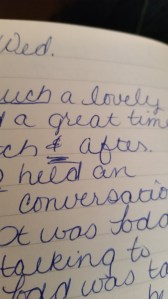 Wed.
such a lovely
a great time
& after.
held an
conversatio
It was Toda
talking to
Todd was ta